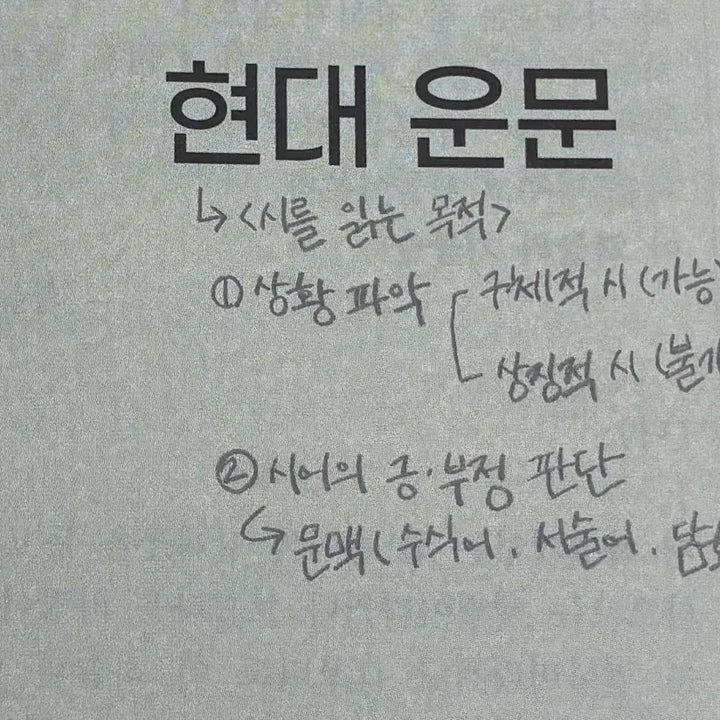 현대 운문
↳ <시를 읽는 목적>
① 상황 파악 구체적 시 (가능)
상징적 시 (불가
② 시어의 긍·부정 판단
↳ 문맥 (수식어, 서술어,